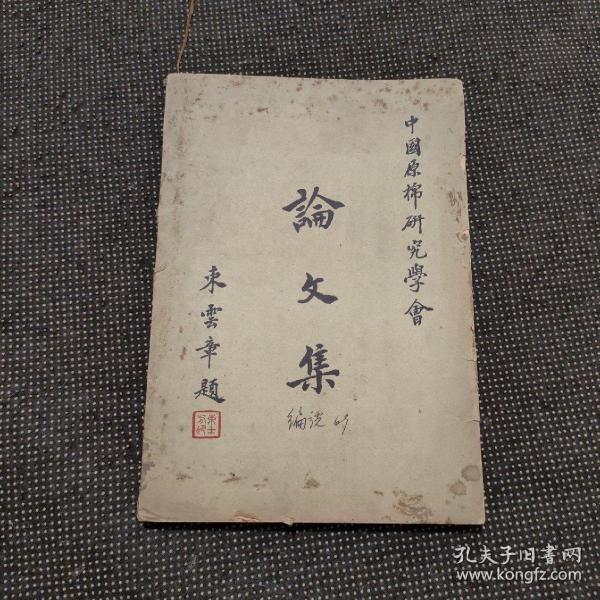 中國原棉研究學會
論文集
束雲章題
編號 69
孔夫子旧书网
www.kongfz.com